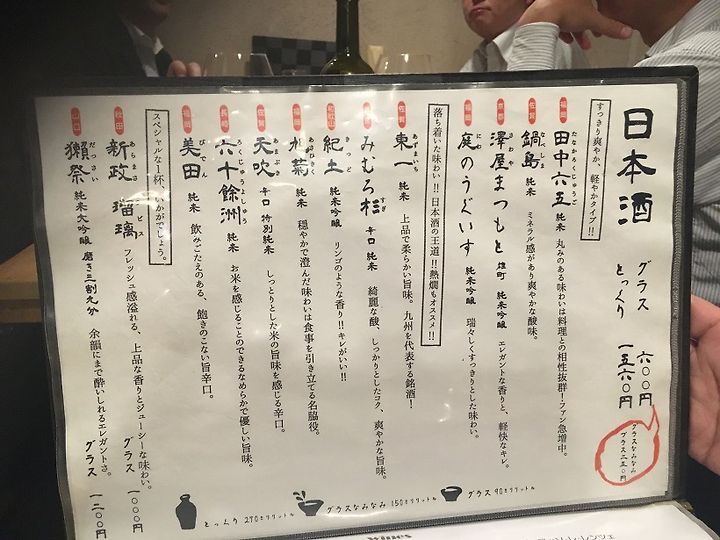 日本酒
グラス 六〇〇円
とっくり 一五六〇円
グラスなみなみ
プラス二五〇円
すっきり爽やか、軽やかタイプ!!
福岡 田中六五 たなかろくじゅうご 純米 丸みのある味わいは料理との相性抜群!ファン急増中。
佐賀 鍋島 なべしま 純米 ミネラル感があり爽やかな酸味。
京都 澤屋まつもと さわや 雄町 純米吟醸 エレガントな香りと、軽快なキレ。
福岡 庭のうぐいす にわ 純米吟醸 瑞々しくすっきりとした味わい。
落ち着いた味わい!!日本酒の王道!!熱燗もオススメ!!
佐賀 東一 あづまいち 純米 上品で柔らかい旨味。九州を代表する銘酒!
みむろ杉 すぎ 辛口 純米 綺麗な酸、しっかりとしたコク、爽やかな旨味。
和歌山 紀土 きっど 純米吟醸 リンゴのような香り!!キレがいい!!
福岡 旭菊 あさひきく 純米 穏やかで澄んだ味わいは食事を引き立てる名脇役。
佐賀 天吹 あまぶき 辛口 特別純米 しっとりとした米の旨味を感じる辛口。
長崎 六十餘洲 ろくじゅうよしゅう 純米 お米を感じることのできるなめらかで優しい旨味。
福岡 美田 びでん 純米 飲みごたえのある、飽きのこない旨辛口。
スペシャルな1杯、いかがでしょう。
秋田 新政 瑠璃 あらまさ ラピス フレッシュ感溢れる、上品な香りとジューシーな味わい。 グラス 一〇〇〇円
山口 獺祭 だっさい 純米大吟醸 磨き三割九分 余韻にまで酔いしれるエレガントさ。 グラス 一二〇〇円
とっくり 270ミリリットル
グラスなみなみ 150ミリリットル
グラス 90ミリリットル